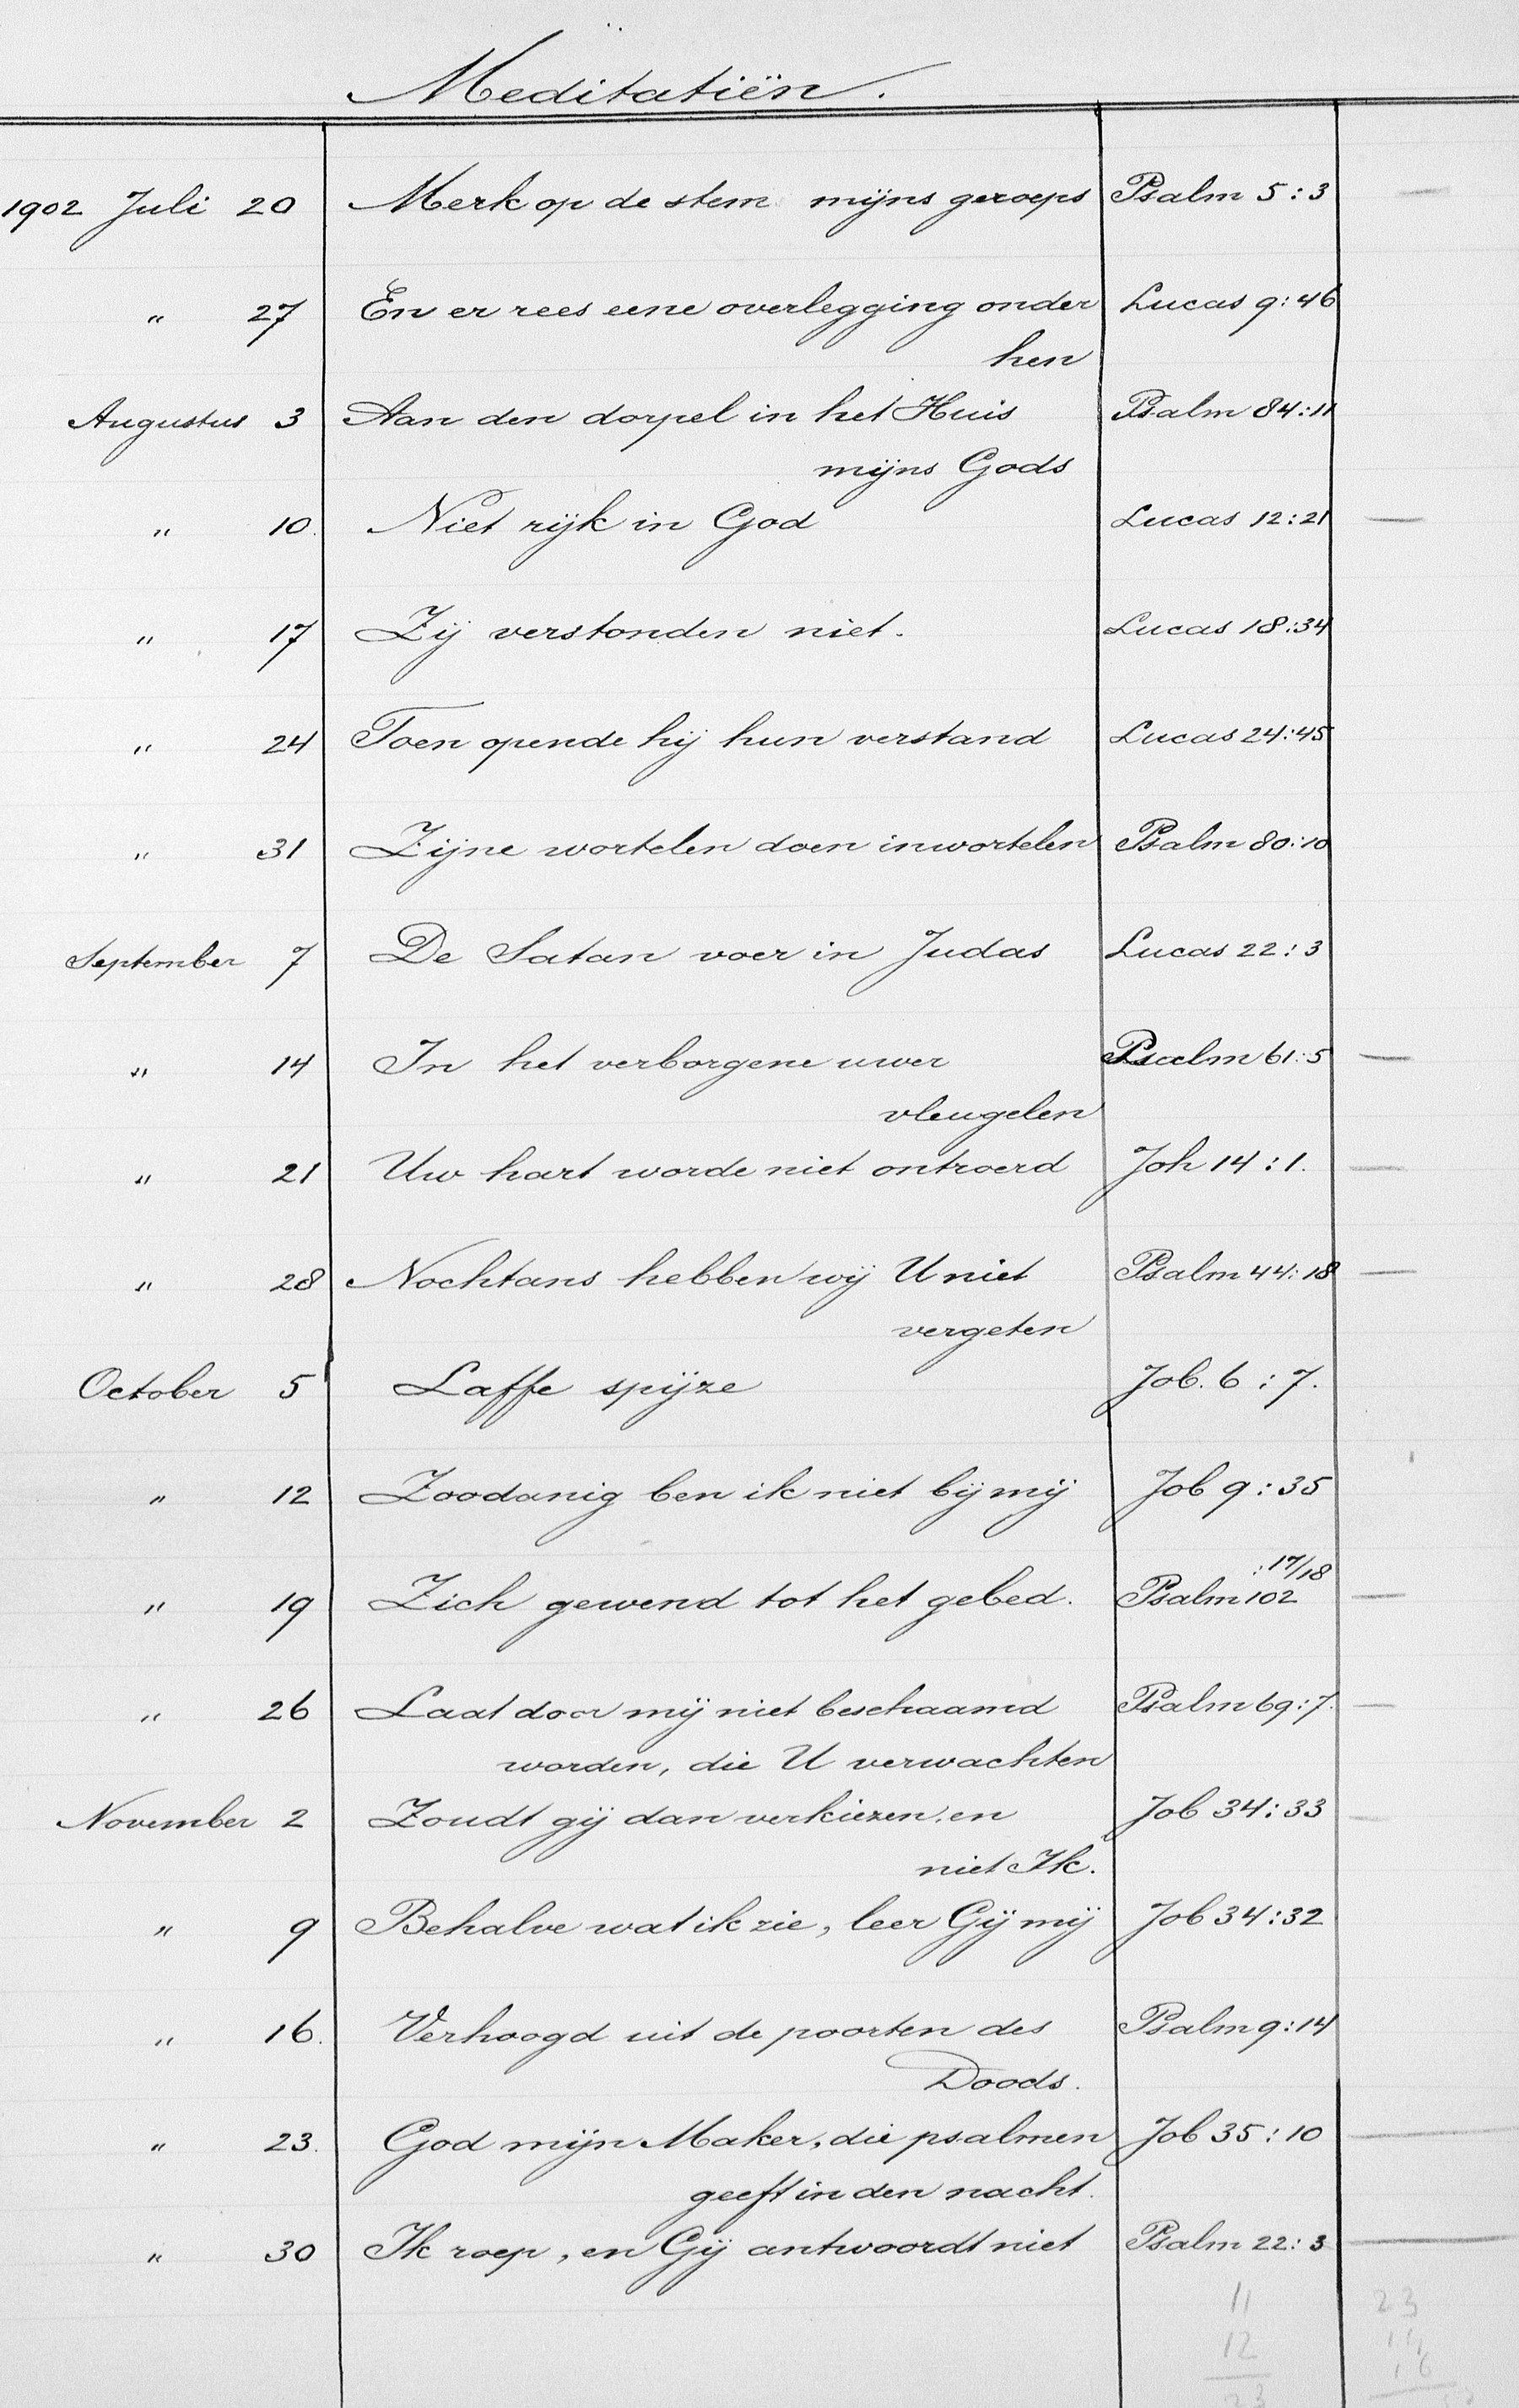 Meditatiën.
1902 Juli 20 Merk op de stem mijns geroeps Psalm 5:3 —
" 27 En er rees eene overlegging onder Lucas 9:46
hen
Augustus 3 Aan den dorpel in het Huis Psalm 84:11
mijns Gods
" 10. Niet rijk in God Lucas 12:21 —
" 17 Zij verstonden niet. Lucas 18:34
" 24 Toen opende hij hun verstand Lucas 24:45
" 31 Zijne wortelen doen inwortelen Psalm 80:10
September 7 De Satan voer in Judas Lucas 22:3
" 14 In het verborgene uwer Psalm 61:5 —
vleugelen
" 21 Uw hart worde niet ontroerd Joh 14:1. —
" 28 Nochtans hebben wij U niet Psalm 44:18 —
vergeten
October 5 Laffe spijze Job. 6:7.
" 12 Zoodanig ben ik niet bij mij Job 9:35
:17/18
" 19 Zich gewend tot het gebed. Psalm 102 —
" 26 Laat door mij niet beschaamd Psalm 69:7. —
worden, die U verwachten
November 2 Zoudt gij dan verkiezen, en Job 34:33 —
niet Ik.
" 9 Behalve wat ik zie, leer Gij mij Job 34:32
" 16. Verhoogd uit de poorten des Psalm 9:14
Doods.
" 23. God mijn Maker, die psalmen Job 35:10 —
geeft in den nacht.
" 30 Ik roep, en Gij antwoordt niet Psalm 22:3 —
11 23
12 11
16
23